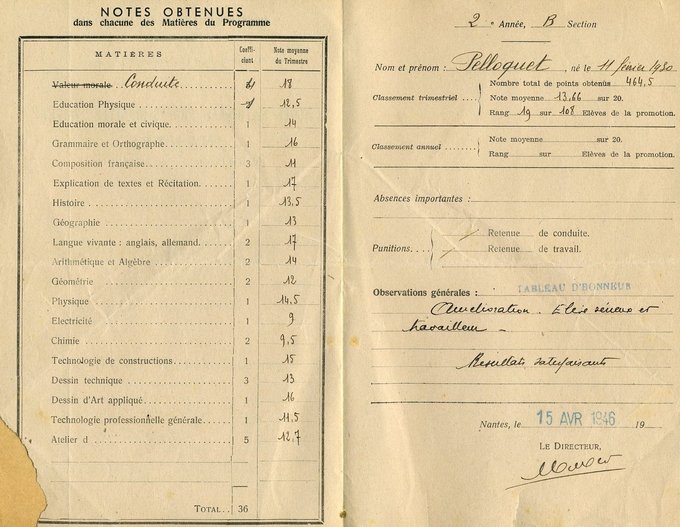 NOTES OBTENUES
dans chacune des Matières du Programme
MATIÈRES
Coeffi-
cient
Note moyenne
du Trimestre
Valeur morale Conduite 18
Education Physique 12,5
Education morale et civique 1 14
Grammaire et Orthographe 1 16
Composition française 3 11
Explication de textes et Récitation 1 17
Histoire 1 13.5
Géographie 1 13
Langue vivante : anglais, allemand 2 17
Arithmétique et Algèbre 2 14
Géométrie 2 12
Physique 1 14,5
Electricité 1 9
Chimie 2 9,5
Technologie de constructions 1 15
Dessin technique 3 13
Dessin d'Art appliqué 1 16
Technologie professionnelle générale 1 11,5
Atelier d 5 12,7
TOTAL 36
2e Année, B Section
Nom et prénom : Pelloquet, né le 11 février 1930
Classement trimestriel
Nombre total de points obtenus 464,5
Note moyenne 13,66 sur 20.
Rang 19 sur 108 Elèves de la promotion.
Classement annuel
Note moyenne sur 20.
Rang sur Elèves de la promotion.
Absences importantes :
Punitions
Retenue de conduite.
Retenue de travail.
TABLEAU D'HONNEUR
Observations générales :
Amélioration. Elève sérieux et
travailleur
Résultats satisfaisants
Nantes, le 15 AVR 1946 19
LE DIRECTEUR,